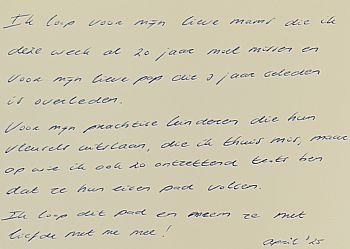 Ik loop voor mijn lieve mams die ik
deze week al 20 jaar moet missen en
voor mijn lieve pap die 9 jaar geleden
is overleden.
Voor mijn prachtige kinderen die hun
vleugels uitslaan, die ik thuis mis, maar
op wie ik ook zo ontzettend trots ben
dat ze hun eigen pad volgen.
Ik loop dit pad en neem ze met
liefde met me mee!
april '25